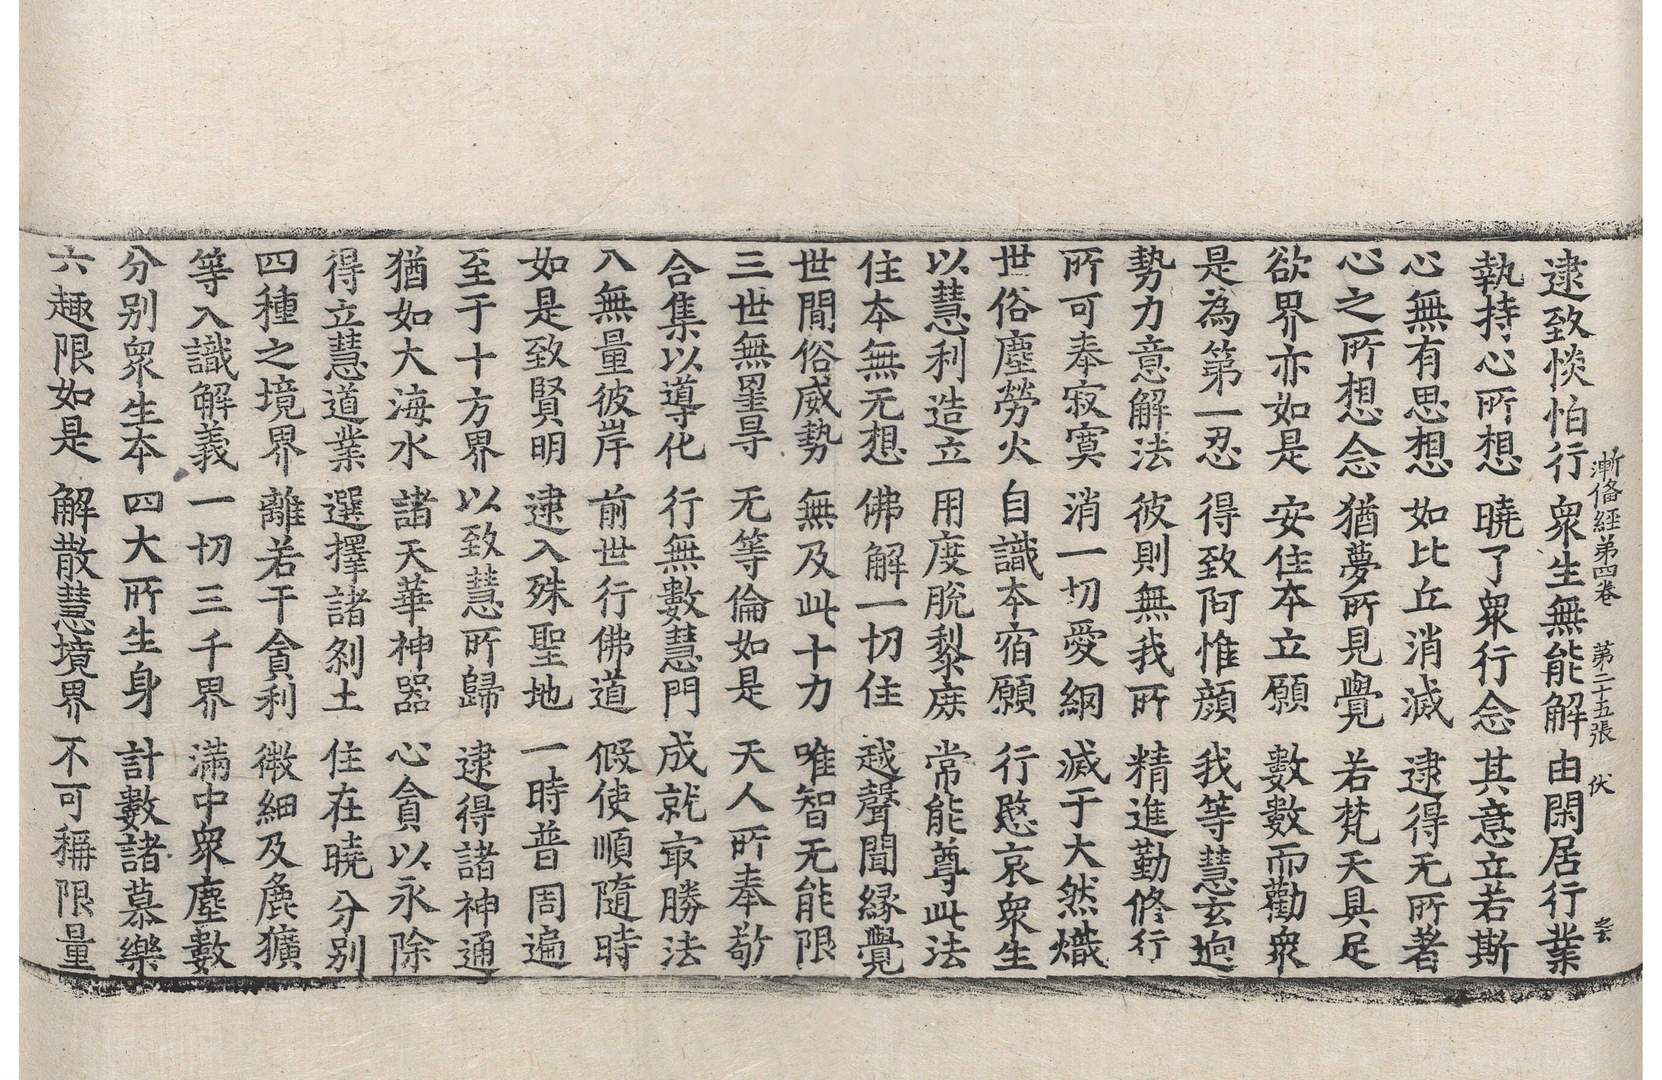 逮致惔怕行 衆生無能解 由閑居行業
漸俻經苐四卷 苐二十五張 伏
執持心所想 曉了衆行念 其意立若斯
心無有思想 如比丘消滅 逮得无所著
心之所想念 猶夢所見覺 若梵天具足
欲界亦如是 安住本立願 數數而勸衆
是為第一忍 得致阿惟顔 我等慧玄逈
勢力意解法 彼則無我所 精進勤修行
所可奉寂寞 消一切愛網 滅于大然熾
世俗塵勞火 自識本宿願 行愍哀衆生
以慧利造立 用度脫黎庶 常能尊此法
住本無无想 佛解一切住 越聲聞緣覺
世間俗威勢 無及此十力 唯智无能限
三世無罣㝵 无等倫如是 天人所奉敬
合集以導化 行無數慧門 成就㝡勝法
入無量彼岸 前世行佛道 假使順隨時
如是致賢明 逮入殊聖地 一時普周遍
至于十方界 以致慧所歸 逮得諸神通
猶如大海水 諸天華神器 心貪以永除
得立慧道業 選擇諸刹土 住在曉分别
四種之境界 離若干貪利 微細及麁獷
等入識解義 一切三千界 滿中衆塵數
分别衆生本 四大所生身 計數諸慕樂
六趣限如是 解散慧境界 不可稱限量